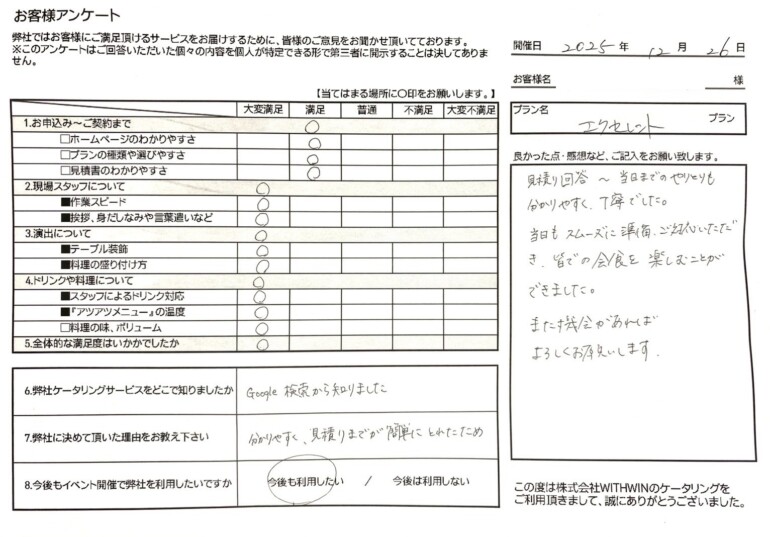 お客様アンケート
弊社ではお客様にご満足頂けるサービスをお届けするために、皆様のご意見をお聞かせ頂いております。
※このアンケートはご回答いただいた個々の内容を個人が特定できる形で第三者に開示することは決してありま
せん。
【当てはまる場所に〇印をお願いします。】
大変満足 満足 普通 不満足 大変不満足
1.お申込み～ご契約まで ○
□ホームページのわかりやすさ ○
□プランの種類や選びやすさ ○
□見積書のわかりやすさ ○
2.現場スタッフについて ○
■作業スピード ○
■挨拶、身だしなみや言葉遣いなど ○
3.演出について ○
■テーブル装飾 ○
■料理の盛り付け方 ○
4.ドリンクや料理について ○
■スタッフによるドリンク対応 ○
■『アツアツメニュー』の温度 ○
□料理の味、ボリューム ○
5.全体的な満足度はいかがでしたか ○
6.弊社ケータリングサービスをどこで知りましたか Google 検索から知りました
7.弊社に決めて頂いた理由をお教え下さい 分かりやすく、見積りまでが簡単にとれたため
8.今後もイベント開催で弊社を利用したいですか 今後も利用したい / 今後は利用しない
開催日 2025 年 12 月 26 日
お客様名 様
プラン名 エクセレント プラン
良かった点・感想など、ご記入をお願い致します。
見積り回答 〜 当日までのやりとりも
分かりやすく、丁寧でした。
当日も スムーズに 準備、ご対応いただ
き、皆での 会食を 楽しむことが
できました。
また機会があれば
よろしくお願いします.
この度は株式会社WITHWINのケータリングを
ご利用頂きまして、誠にありがとうございました。